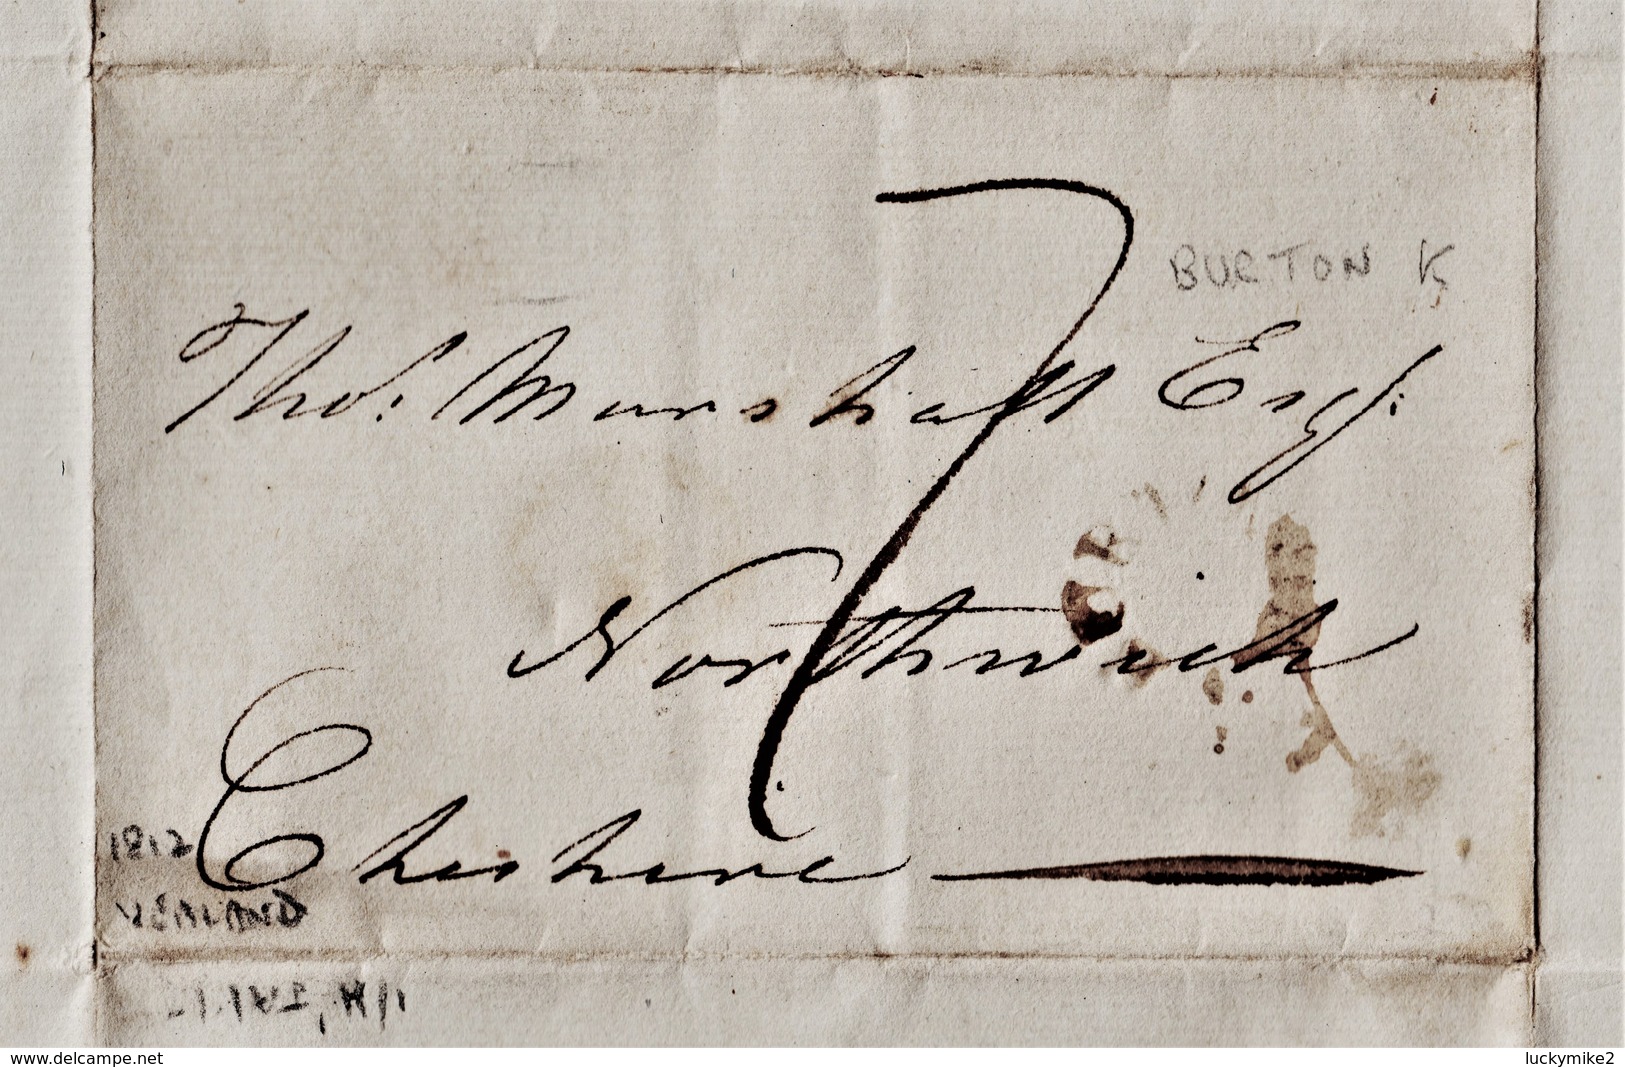 7
BURTON
Thos: Marshall Esqr:
Northwich
Cheshire
1812
YEALAND
www.delcampe.net
luckymike2